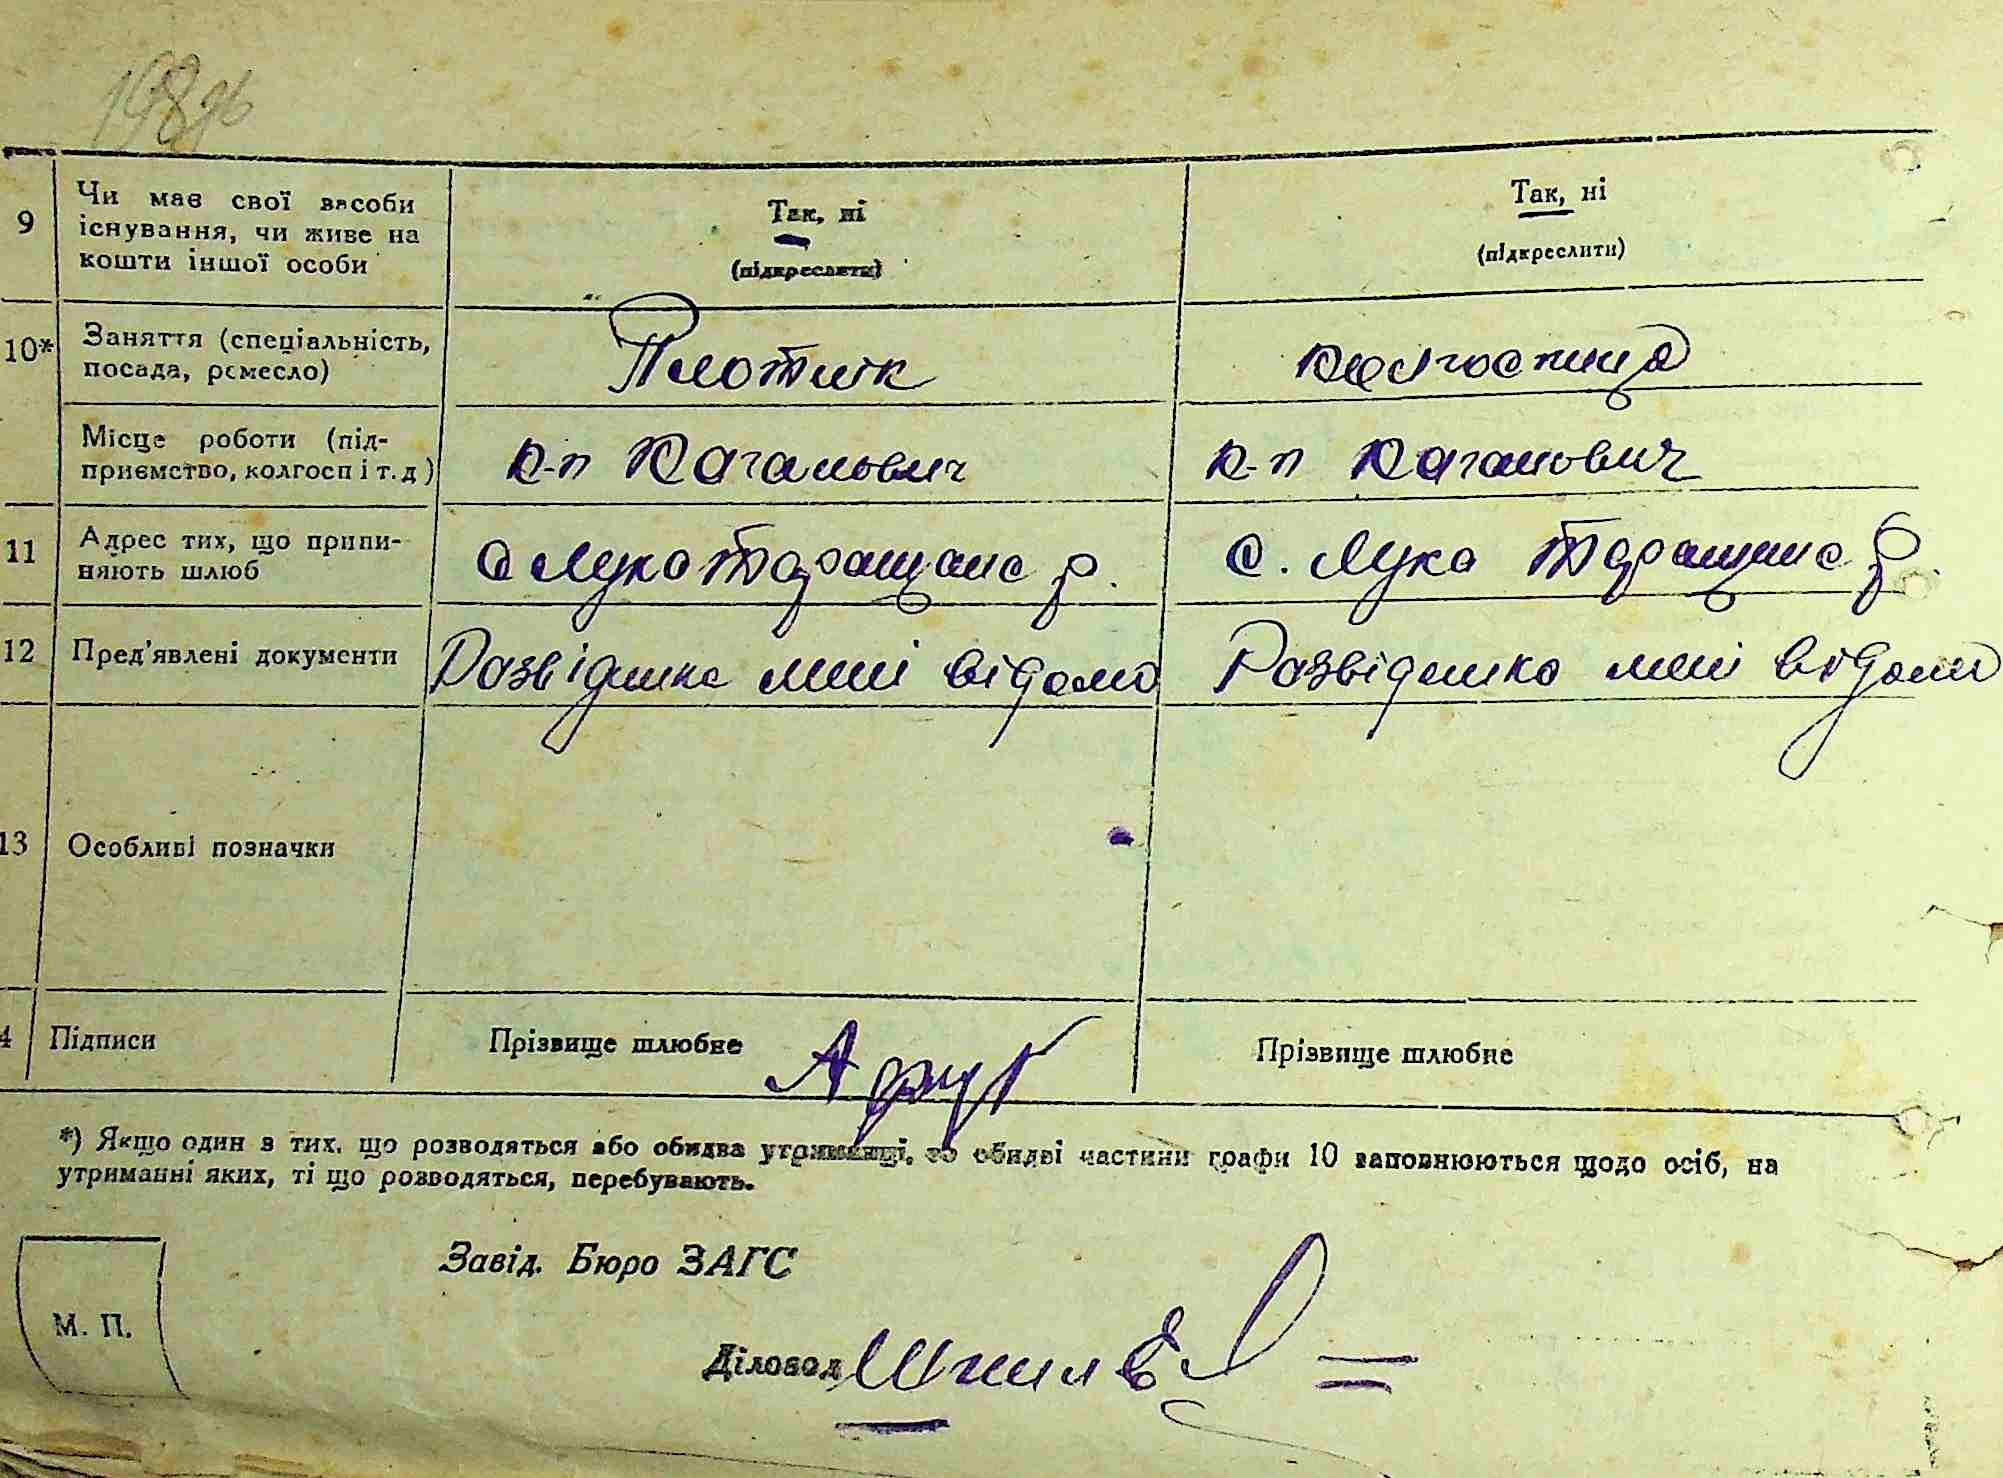 198
9 Чи має свої засоби Так, ні Так, ні
існування, чи живе на
кошти іншої особи (підкреслити) (підкреслити)
10* Заняття (спеціальність, Плотнік колгоспниця
посада, ремесло)
Місце роботи (під- к-п Каганович к-п Каганович
приємство, колгосп і т. д)
11 Адрес тих, що припи- с Лука Таращанс р. с. Лука Таращанс р.
няють шлюб
12 Пред'явлені документи Розвідишка мені відомо Розвідишка мені відомо
13 Особливі позначки
4 Підписи Прізвище шлюбне Прізвище шлюбне
*) Якщо один з тих, що розводяться або обидва утриманці, то обидві частини графи 10 заповнюються щодо осіб, на
утриманні яких, ті що розводяться, перебувають.
Завід. Бюро ЗАГС
М. П.
Діловод